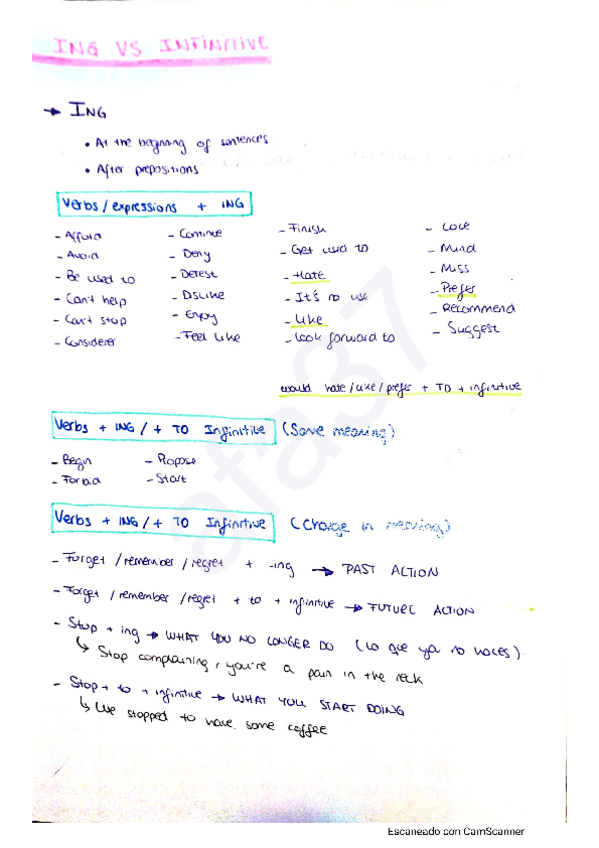 ING VS INFINITIVE
→ ING
• At the beginning of sentences
• After prepositions
Verbs / expressions + ING
- Afford
- Avoid
- Be used to
- Can't help
- Can't stop
- Considerer
- Continue
- Deny
- Detest
- Dislike
- Enjoy
- Feel like
- Finish
- Get used to
- Hate
- It's no use
- Like
- Look forward to
- Love
- Mind
- Miss
- Prefer
- Recommend
- Suggest
would hate / like / prefer + TO + infinitive
Verbs + ING / + TO Infinitive (Same meaning)
- Begin
- Forbid
- Propose
- Start
Verbs + ING / + TO Infinitive (Change in meaning)
- Forget / remember / regret + -ing → PAST ACTION
- Forget / remember / regret + to + infinitive → FUTURE ACTION
- Stop + ing → WHAT YOU NO LONGER DO (Lo que ya no haces).
↳ Stop complaining, you're a pain in the neck
- Stop + to + infinitive → WHAT YOU START DOING
↳ We stopped to have some coffee
afa37
Escaneado con CamScanner